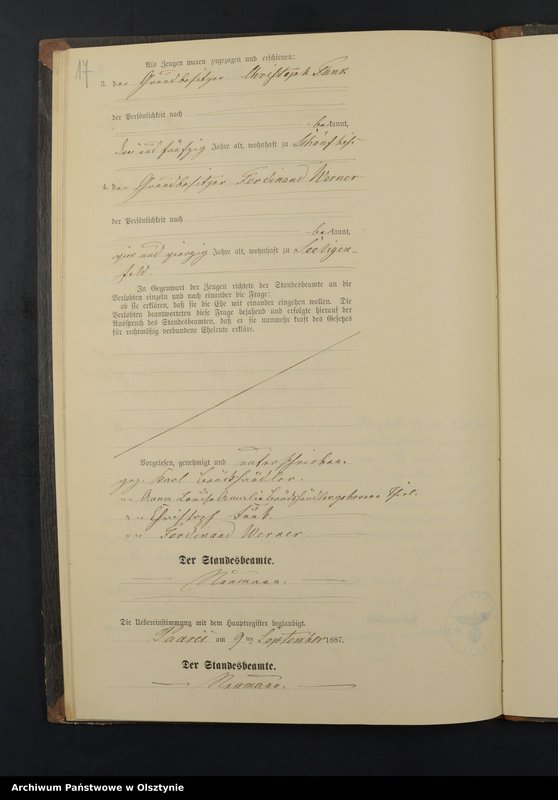 17
Als Zeugen waren zugezogen und erschienen:
3. der Grundbesitzer Christoph Funk
der Persönlichkeit nach
bekannt,
drei und fünfzig Jahre alt, wohnhaft zu
4. der Grundbesitzer Ferdinand Werner
der Persönlichkeit nach
bekannt,
vier und vierzig Jahre alt, wohnhaft zu Seeligen-
feld
In Gegenwart der Zeugen richtete der Standesbeamte an die
Verlobten einzeln und nach einander die Frage:
ob sie erklären, daß sie die Ehe mit einander eingehen wollen. Die
Verlobten beantworteten diese Frage bejahend und erfolgte hierauf der
Ausspruch des Standesbeamten, daß er sie nunmehr kraft des Gesetzes
für rechtmäßig verbundene Eheleute erkläre.
Vorgelesen, genehmigt und unterschrieben.
gez. Karl
Anna Louise Amalie geborene Thiel.
Christoph Funk.
Ferdinand Werner.
Der Standesbeamte.
Neumann.
Die Uebereinstimmung mit dem Hauptregister beglaubigt.
Paaris am 9ten September 1887.
Der Standesbeamte.
Neumann.
Archiwum Państwowe w Olsztynie